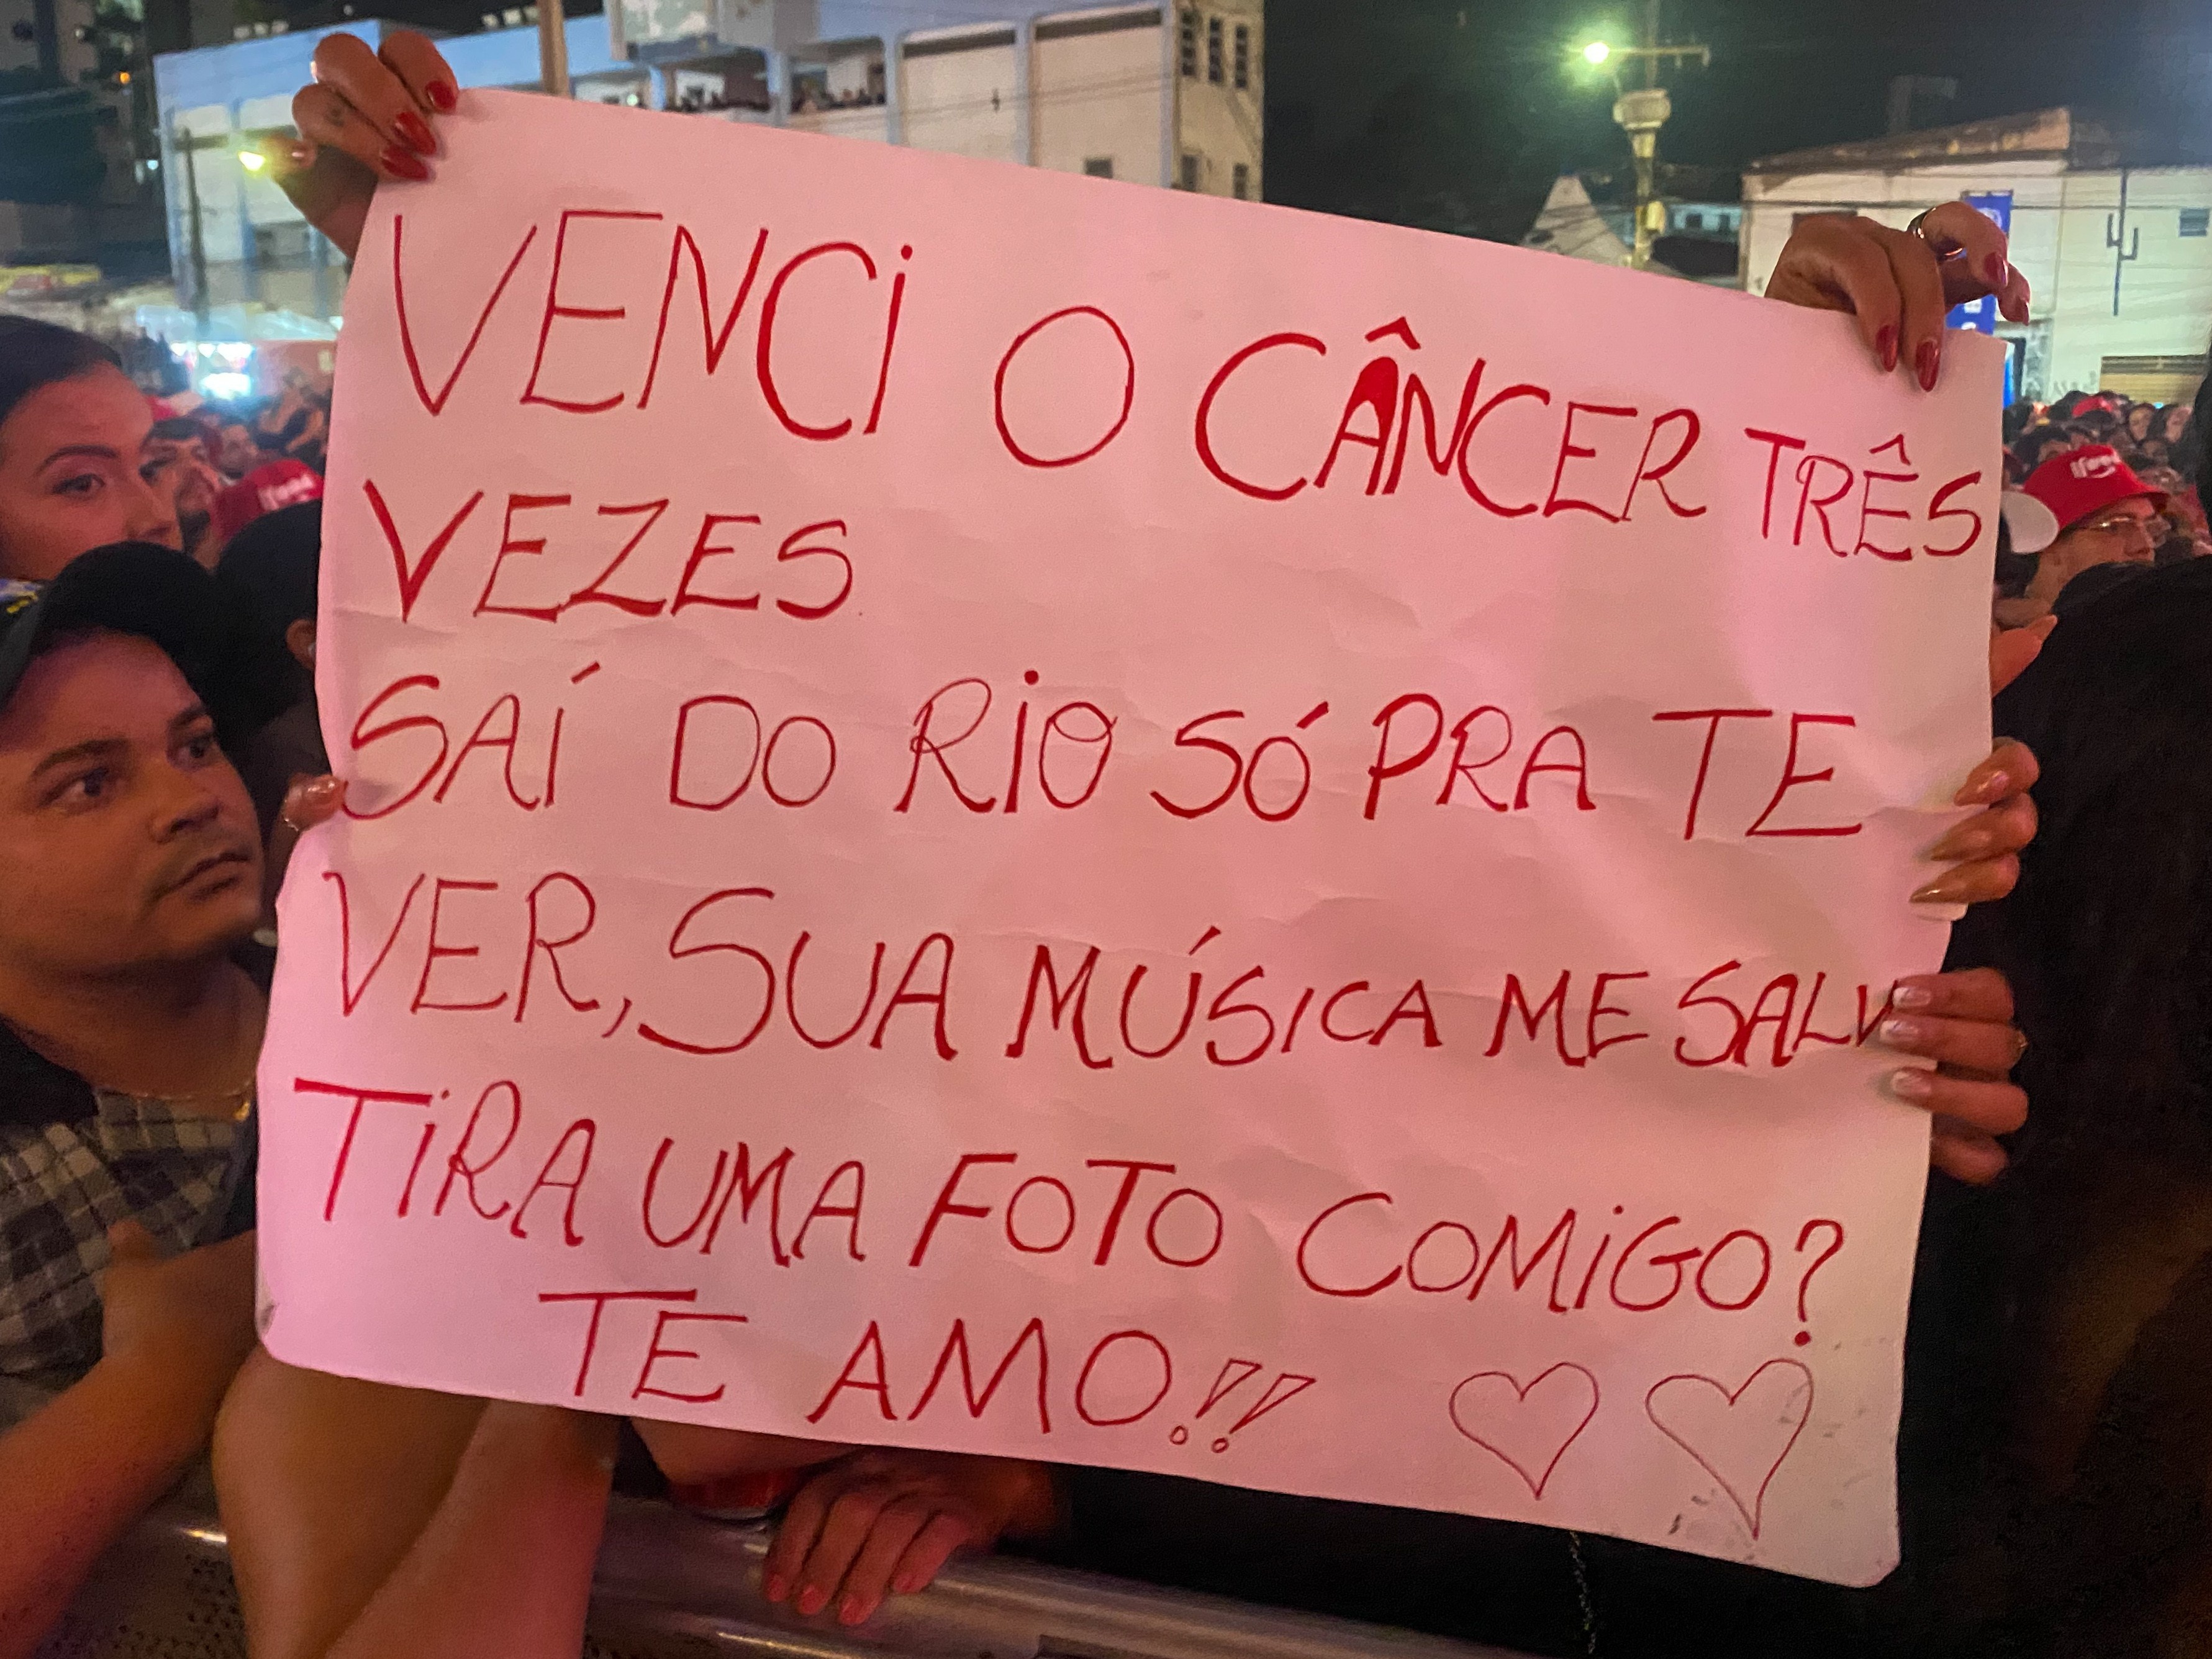 VENCI O CÂNCER TRÊS
VEZES
SAÍ DO RIO SÓ PRA TE
VER, SUA MÚSICA ME SALV
TIRA UMA FOTO COMIGO?
TE AMO!!